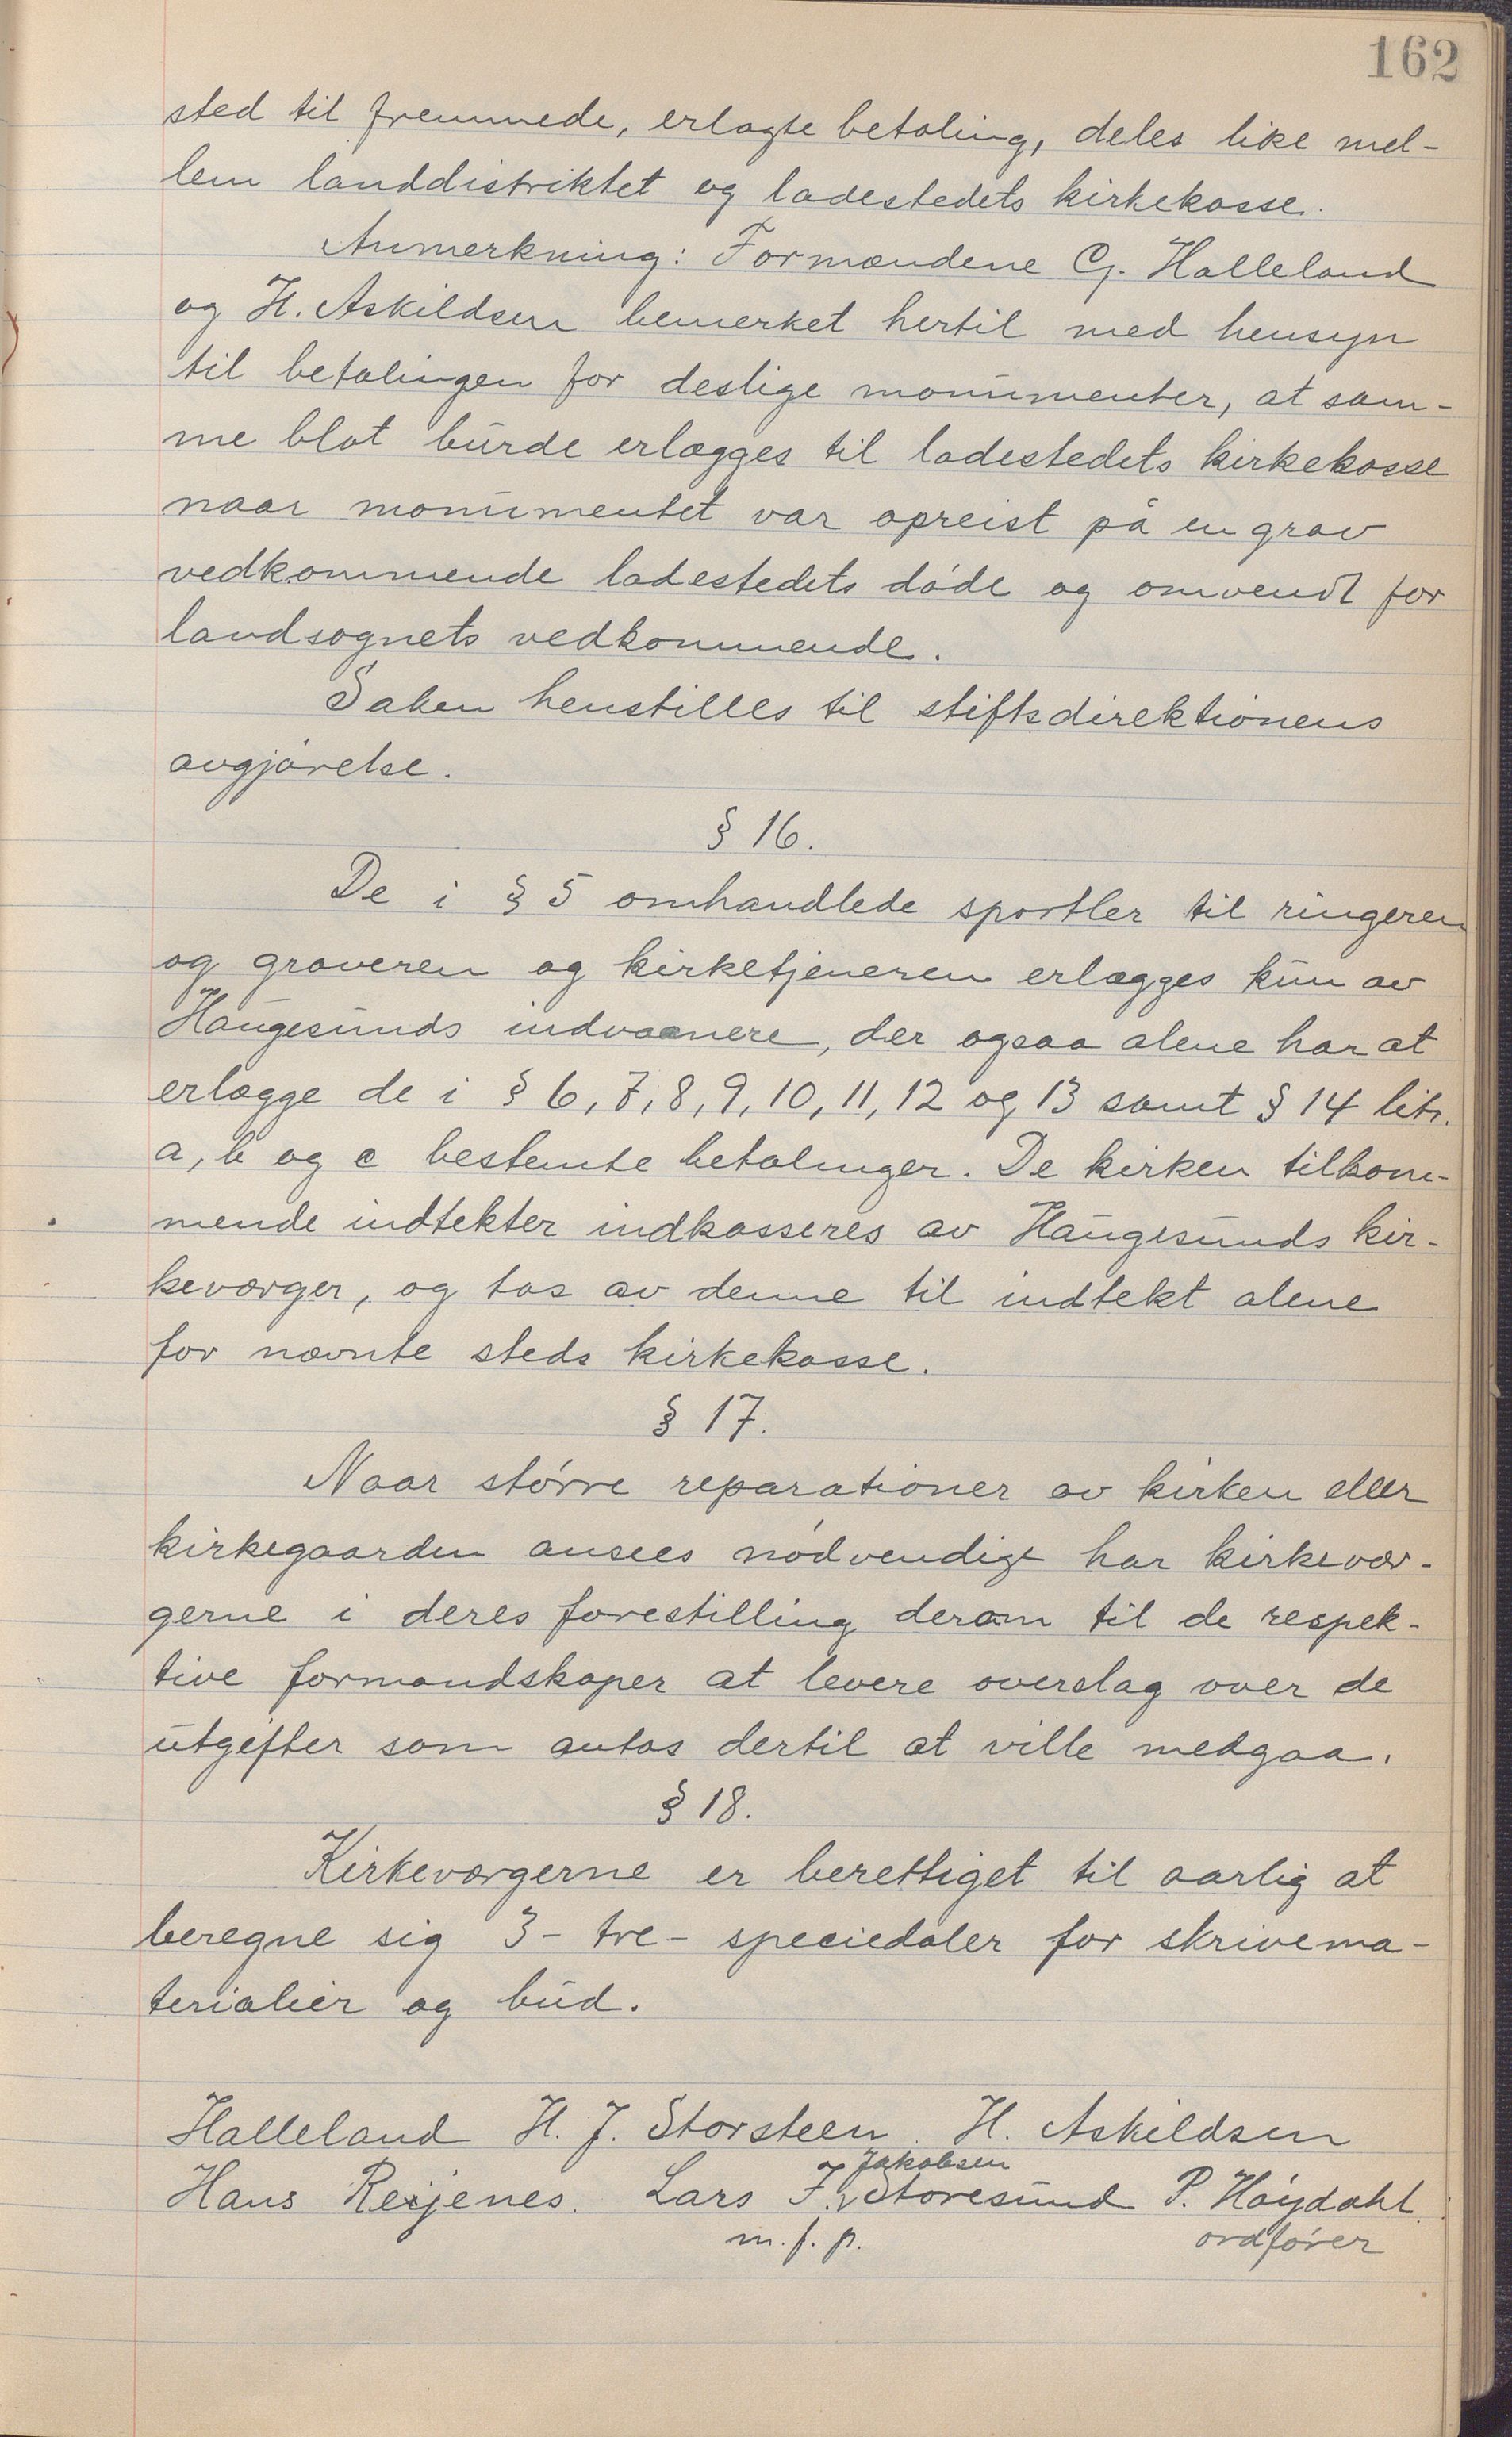 162
sted til fremmede, erlagte betaling, deles like mel-
lem landdistriktet og ladestedets kirkekasse.
Anmerkning: Formændene G. Halleland
og H. Askildsen bemerket hertil med hensyn
til betalingen for deslige monumenter, at sam-
me blot burde erlægges til ladestedets kirkekasse
naar monumentet var opreist på en grav
vedkommende ladestedets døde og omvendt for
landsognets vedkommende.
Saken henstilles til stiftsdirektionens
avgjørelse.
§ 16.
De i § 5 omhandlede sportler til ringeren
og graveren og kirketjeneren erlægges kun av
Haugesunds indvaanere, der ogsaa alene har at
erlægge de i § 6, 7, 8, 9, 10, 11, 12 og 13 samt § 14 litr.
a, b og c bestemte betalinger. De kirken tilkom-
mende indtekter indkasseres av Haugesunds kir-
keværger, og tas av denne til indtekt alene
for nævnte steds kirkekasse.
§ 17.
Naar større reparationer av kirken eller
kirkegaarden ansees nødvendigt har kirkevær-
gerne i deres forestilling derom til de respek-
tive formandskaper at levere overslag over de
utgifter som antas dertil at ville medgaa.
§ 18.
Kirkeværgerne er berettiget til aarlig at
beregne sig 3 - tre - speciedaler for skrivema-
terialier og bud.
Halleland H. J. Storsteen. H. Askildsen
Hans Reijenes. Lars J. Jakobsen Storesund P. Høydahl.
m. f. p. ordfører